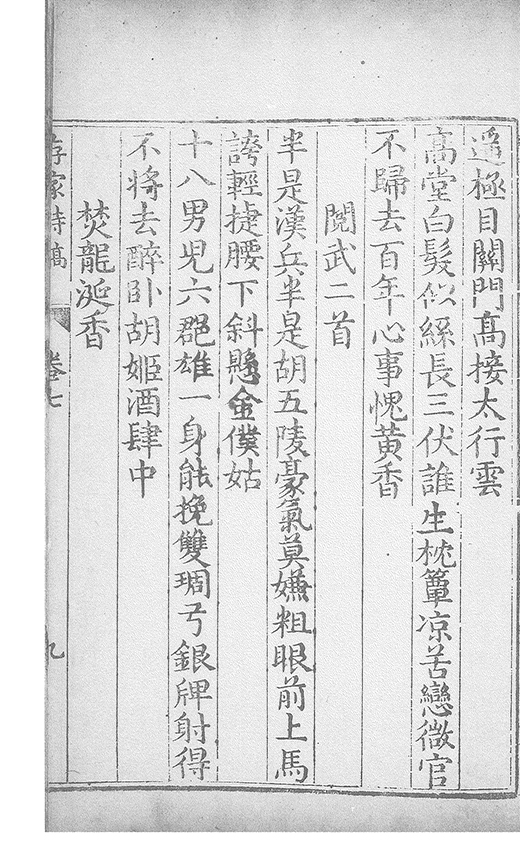 遥極目關門髙接太行雲
高堂白髮似絲長三伏誰生枕簟凉苦戀微官
不歸去百年心事愧黄香
閲武二首
半是漢兵半是胡五陵豪氣莫嫌粗眼前上馬
誇輕捷腰下斜懸金僕姑
十八男児六郡雄一身能挽雙琱弓銀牌射得
不将去醉卧胡姬酒肆中
焚龍涎香
存家詩稿
卷七
九